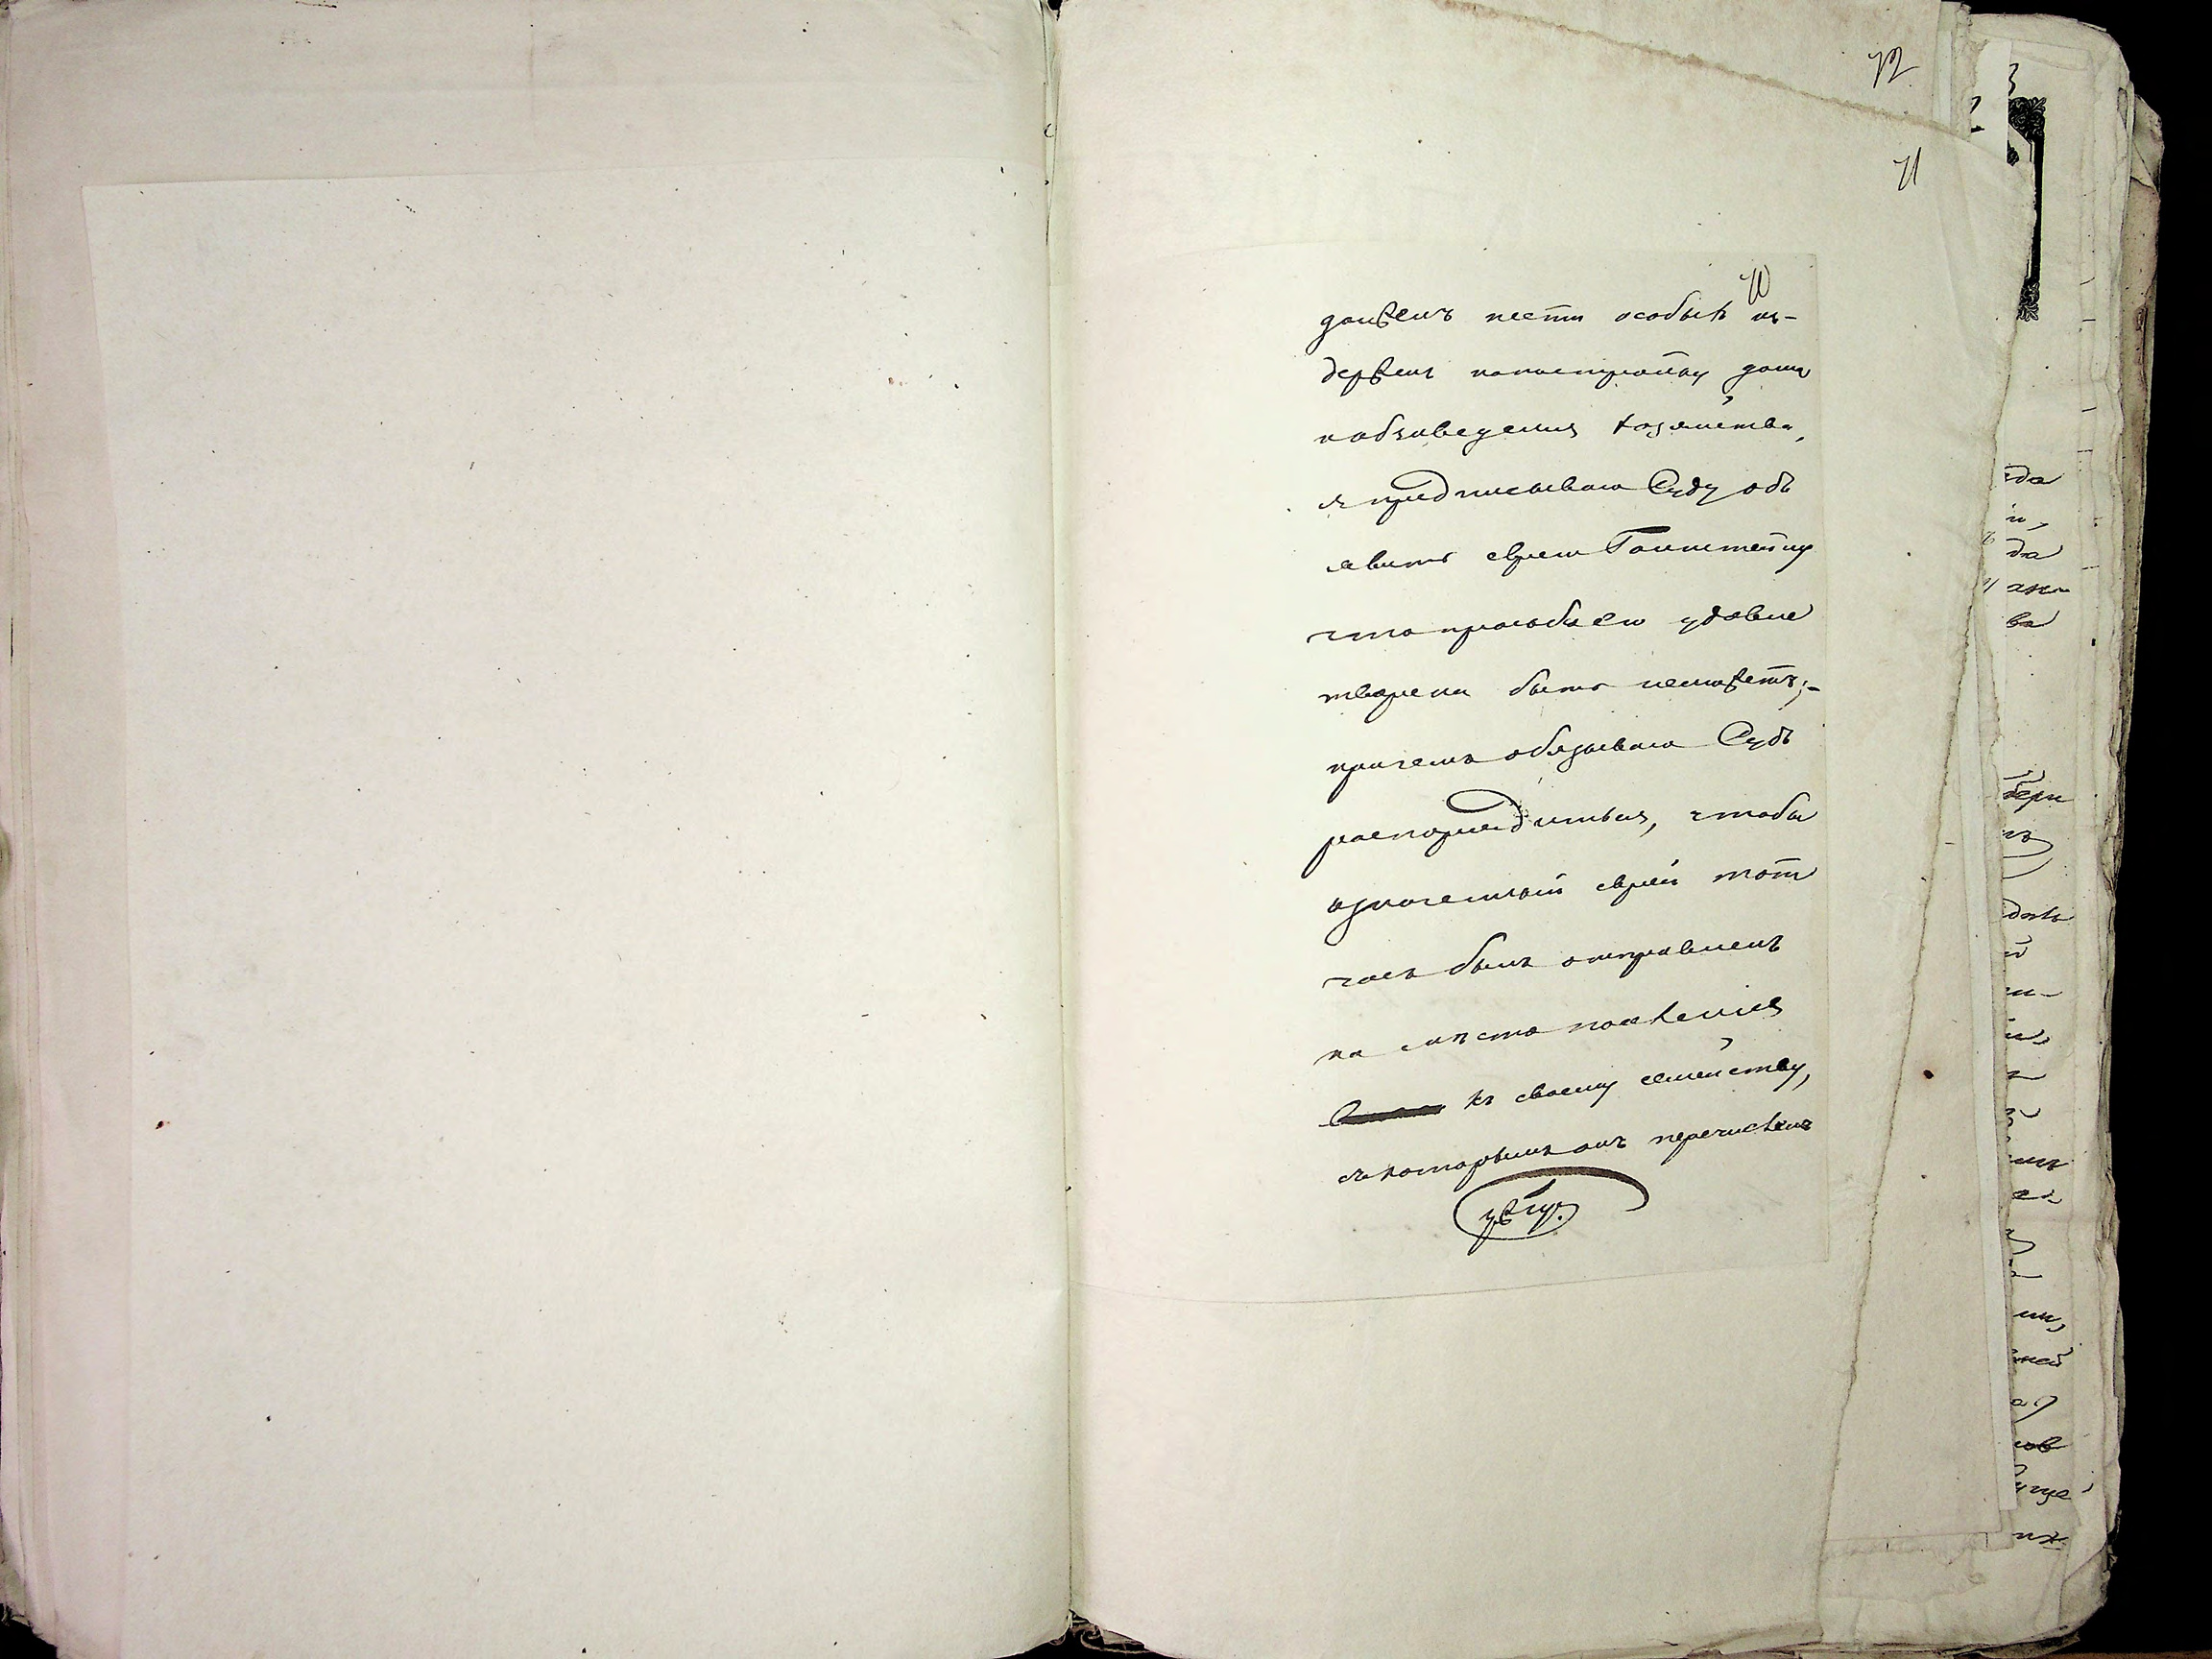 72
71
70
долженъ нести особыя из-
держки напостройку дома
иобзаведенія хозяйства,
я предписываю Суду объ
явить еврею Гольштейну
что прозьба его удовле
творена быть неможетъ;-
причемъ обязываю Судъ
распорядиться, чтобы
означенный еврей тотъ
часъ былъ отправленъ
на мѣсто поселенія
къ своему семейству,
съкоторымъ онъ перечисленъ